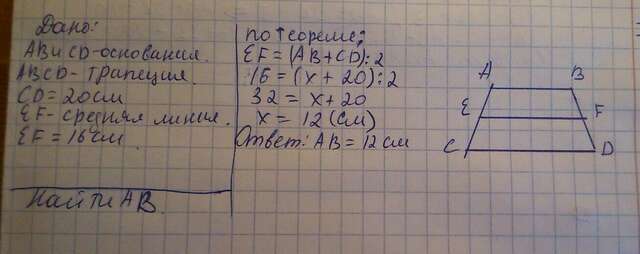 Дано:
AB и CD-основания.
ABCD-трапеция.
CD=20см
EF-средняя линия.
EF=16см.
Найти AB.
по теореме:
EF=(AB+CD):2
16=(x+20):2
32=x+20
x=12(см)
Ответ: AB=12см
A B
E F
C D